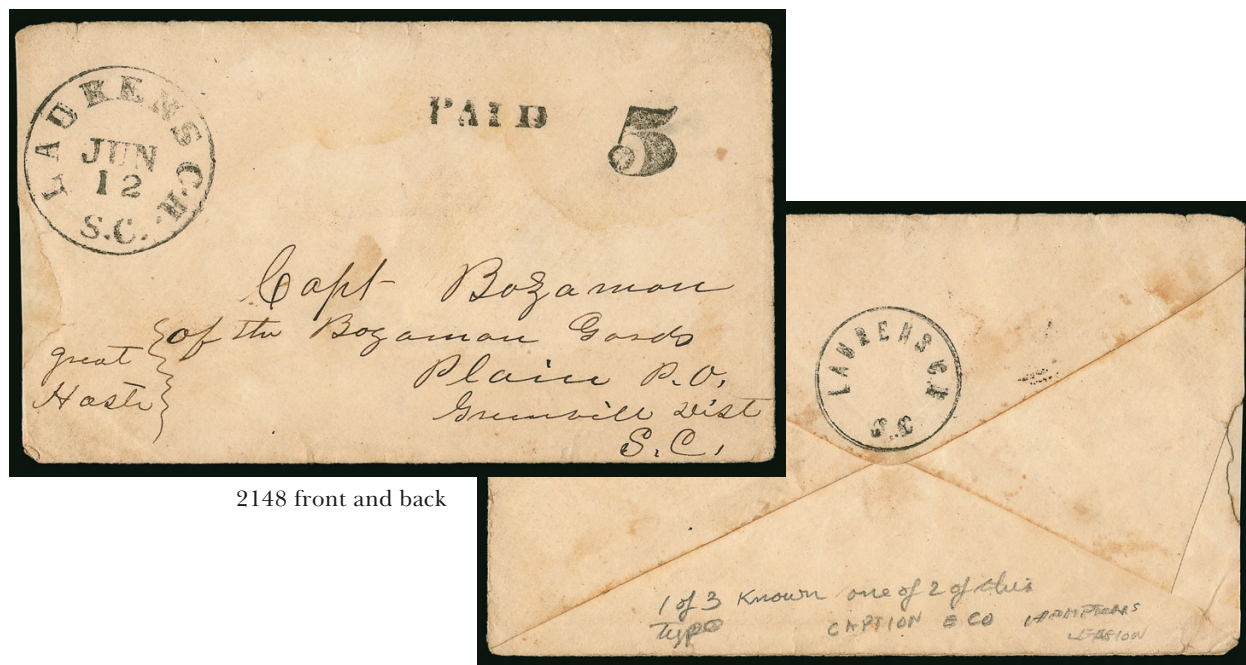 LAURENS C.H.
JUN
12
S.C.
PAID
5
Capt Bozamon
of the Bozamon Gards
Plain P.O.
Greenvill Dist
S.C.
great
Haste
2148 front and back
LAURENS C.H
S.C
1 of 3 Known one of 2 of this
type
CAPTION E CO HAMPTONS
LEGION